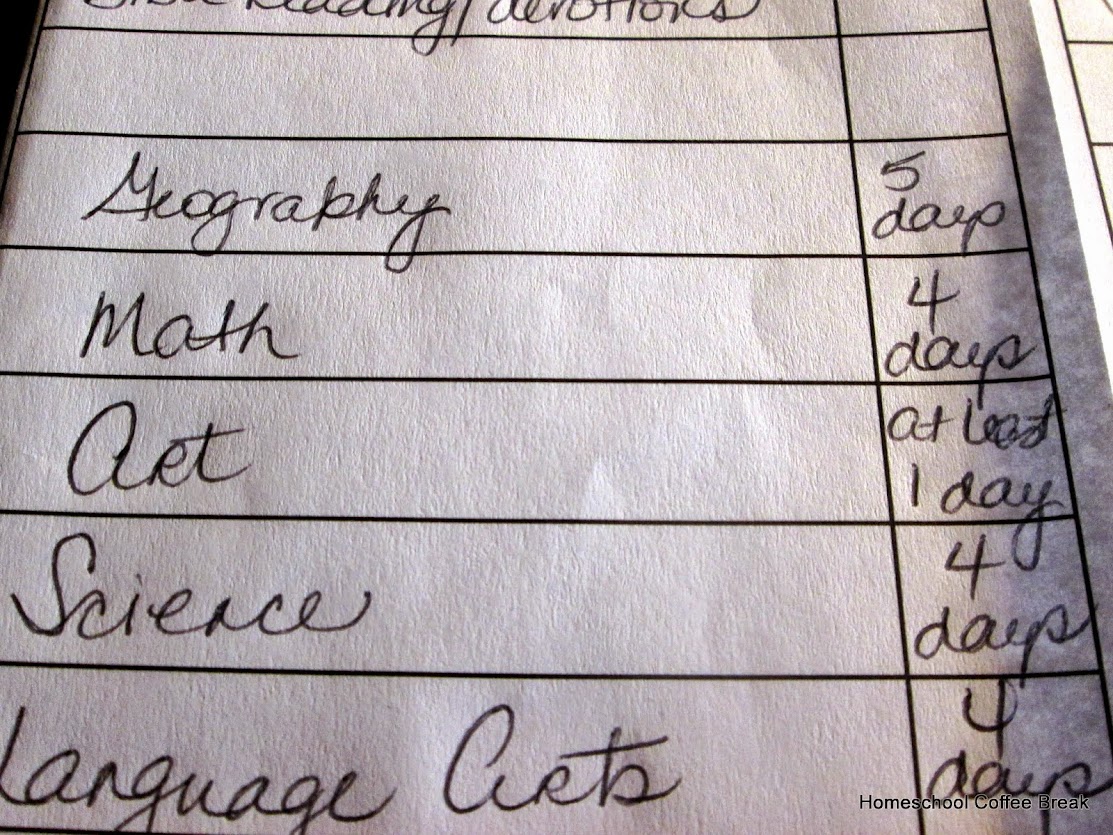 Bible Reading/devotions
Geography
5
days
Math
4
days
Art
at least
1 day
Science
4
days
Language Arts
4
days
Homeschool Coffee Break